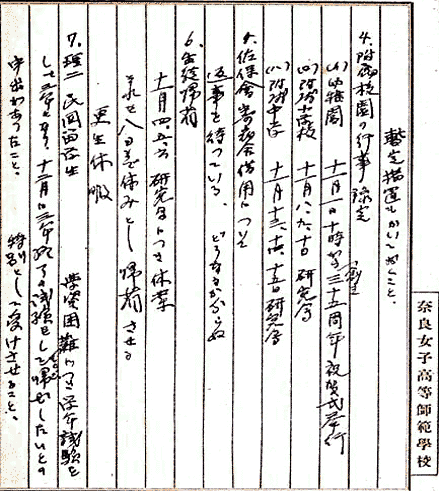 暫定措置もかいておくこと。
4. 附属校園の行事 予定
(イ) 幼稚園 十一月一日十時から三十五周年祝賀式挙行
(ロ) 附属小学校 十一月八、九、十日 研究会
(ハ) 附属中学 十一月十三、十四、十五日 研究会
5. 佐保会 借用について
返事を待っている、どうなるかわからぬ
6. 帰省
十一月四、五、六 研究会につき休業
それで八日まで休みとし 帰省させる
更生休暇
7. 理二 民国留学生 学資困難につき 学年試験を
して 十二月に三年終了の試験をして帰国したいとの
申出があったこと。 特別として受けさせること。
奈良女子高等師範學校